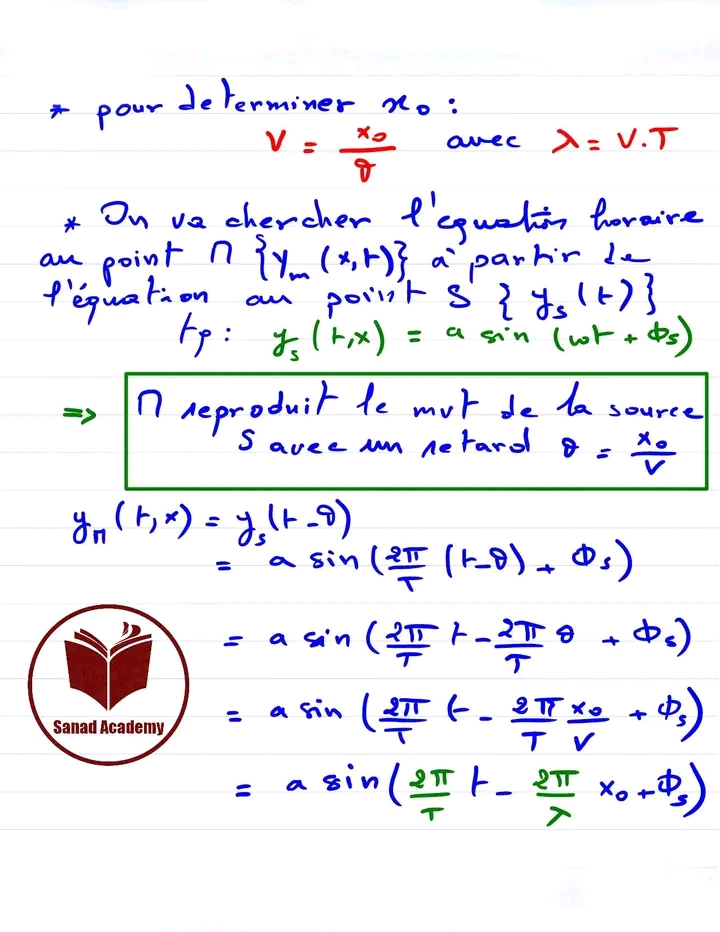 * pour determiner x₀ :
V = x₀/θ avec λ = V.T
* On va chercher l'equation horaire
au point M {yₘ(x,t)} à partir de
l'équation au point S {yₛ(t)}
tp : yₛ(t,x) = a sin (ωt + Φₛ)
=> M reproduit le mvt de la source
S avec un retard θ = x₀/V
yₘ(t,x) = yₛ(t-θ)
= a sin (2π/T (t-θ) + Φₛ)
= a sin (2π/T t - 2π/T θ + Φₛ)
= a sin (2π/T t - 2π/T x₀/V + Φₛ)
= a sin (2π/T t - 2π/λ x₀ + Φₛ)
Sanad Academy